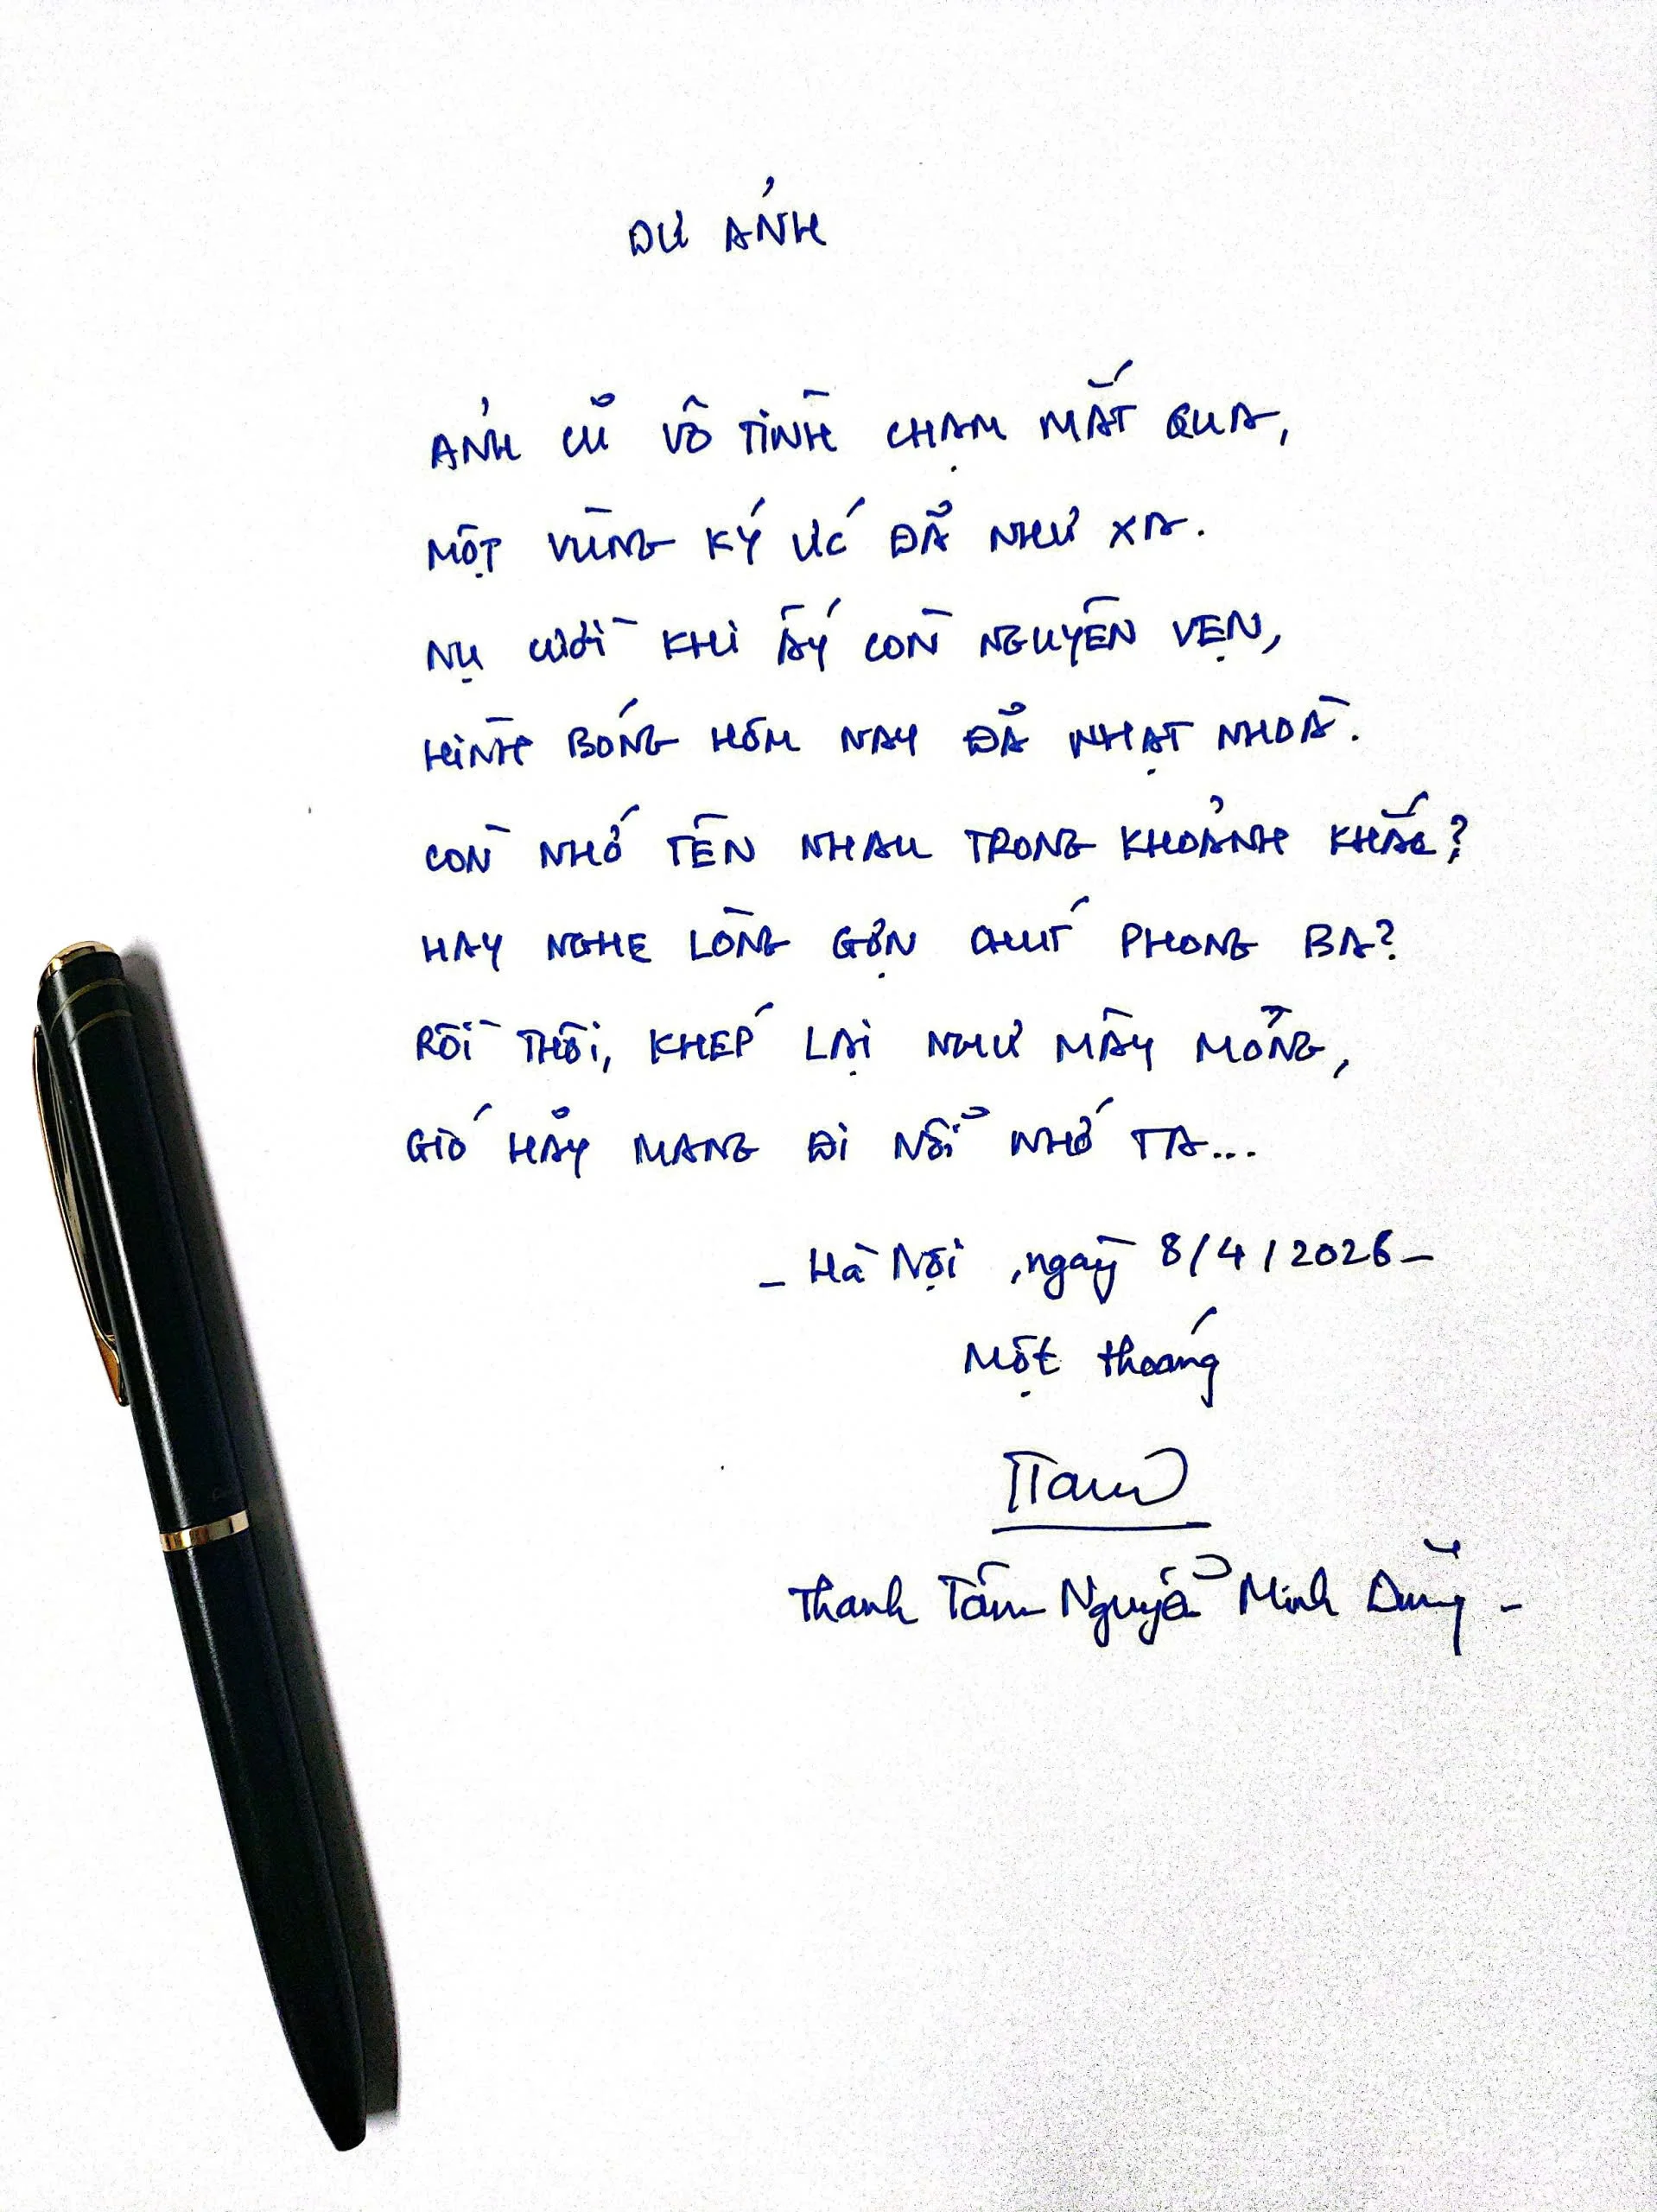 DƯ ẢNH
ẢNH CŨ VÔ TÌNH CHẠM MẮT QUA,
MỘT VÙNG KÝ ỨC ĐÃ NHƯ XA.
NỤ CƯỜI KHI ẤY CÒN NGUYÊN VẸN,
HÌNH BÓNG HÔM NAY ĐÃ NHẠT NHOÀ.
CÒN NHỚ TÊN NHAU TRONG KHOẢNH KHẮC?
HAY NGHE LÒNG GỢN CHÚT PHONG BA?
RỒI THÔI, KHÉP LẠI NHƯ MÂY MỎNG,
GIÓ HÃY MANG ĐI NỖI NHỚ TA...
- Hà Nội, ngày 8/4/2026 -
Một thoáng
Tam
Thanh Tâm Nguyễn Minh Dũng -